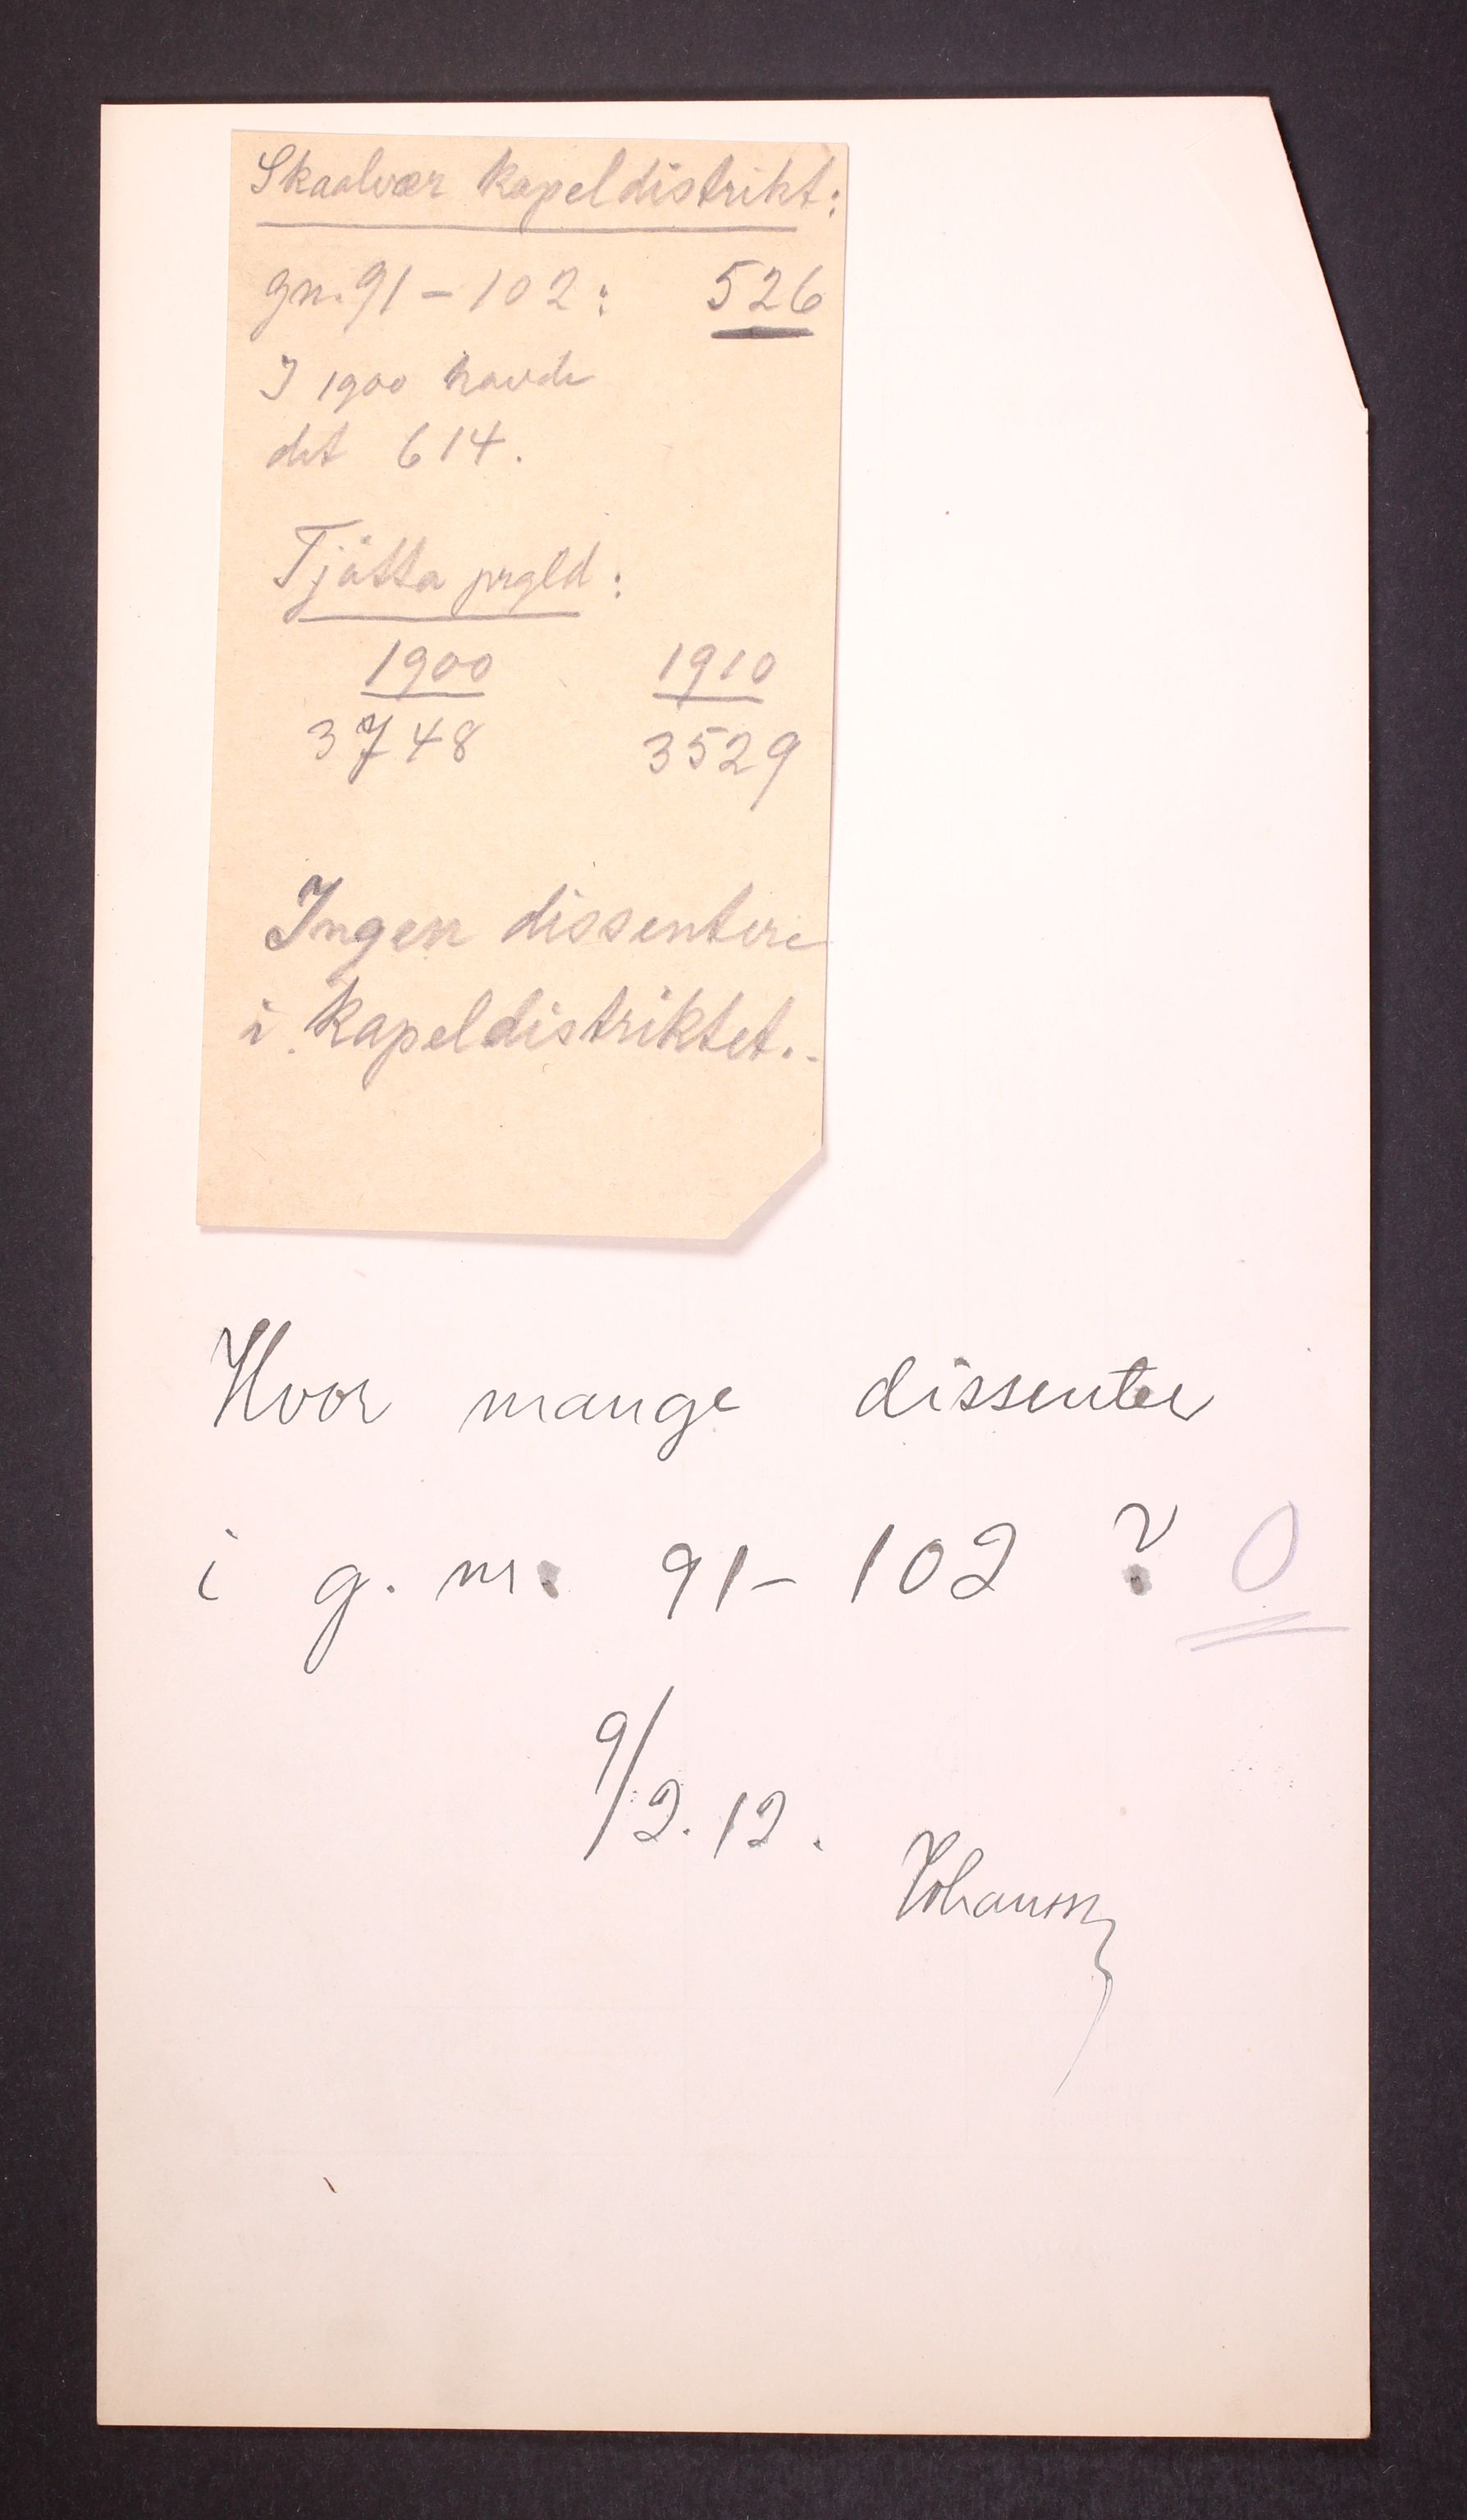 Skaalvær kapeldistrikt:
gn. 91 - 102: 526
I 1900 havde
det 614.
Tjötta prgld:
1900 1910
3748 3529
Ingen dissentere
i kapeldistriktet.
Hvor mange dissenter
i g. nr. 91 - 102 ? 0
9/2. 12.